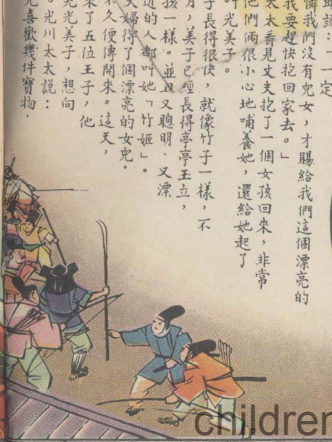 一定
憐我們沒有兒女,才賜給我們這個漂亮的
我要趕快抱回家去。」
太太看見丈夫抱了一個女孩回來,非常
他們倆很小心地哺養她,還給她起了
叫光美子。
子長得很快,就像竹子一樣,不
月,美子已經長得亭亭玉立,
孩一樣。並且又聰明、又漂
近的人都叫她「竹姬」。
夫婦得了個漂亮的女兒。
不久便傳開來。這天,
來了五位王子,他
光美子,想向
。光川太太說:
光喜歡幾件寶物
children